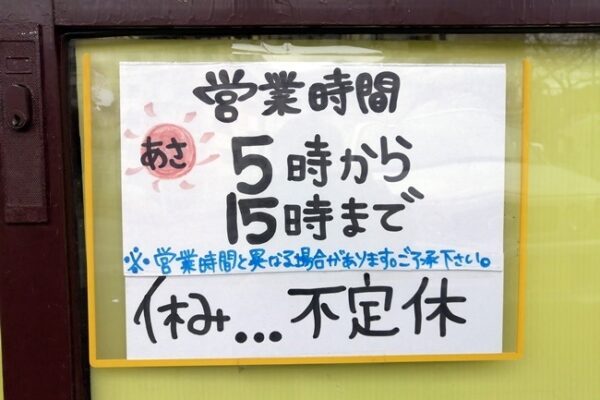 営業時間
あさ 5時から
15時まで
※営業時間と異なる場合があります。ご了承下さい。
休み...不定休